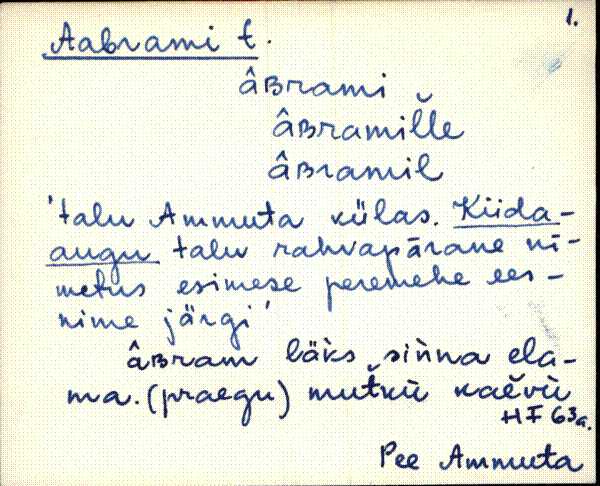 1.
Aabrami t.
âʙrami
âʙramil̆l̆e
âʙramil
'talu Ammuta külas. Kiida-
augu talu rahvapärane ni-
metus esimese peremehe ees-
nime järgi'
âʙram läks sin̆na ela-
ma. (praegu) mut̆kü kaĕvù
HF 63a.
Pee Ammuta